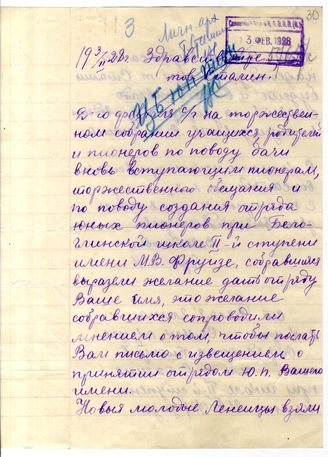 30
3
Лич. арх.
13 ФЕВ. 1928
19 3/II 28 г. Здравствуйте
тов. Сталин.
собрании учащихся родителей
и пионеров по поводу дачи
вновь вступающим пионерам,
торжественного обещания и
по поводу создания отряда
юных пионеров при Бело-
Глинской школе II-й ступени
имени М.В. Фрунзе, собравшиеся
выразели желание дать отряду
Ваше имя, это желание
собравшихся сопроводили
мнением о том, чтобы послать
Вам письмо с извещением о
принятии отрядом Ю.П. Вашего
имени.
Новыя молодые Ленинцы взяли